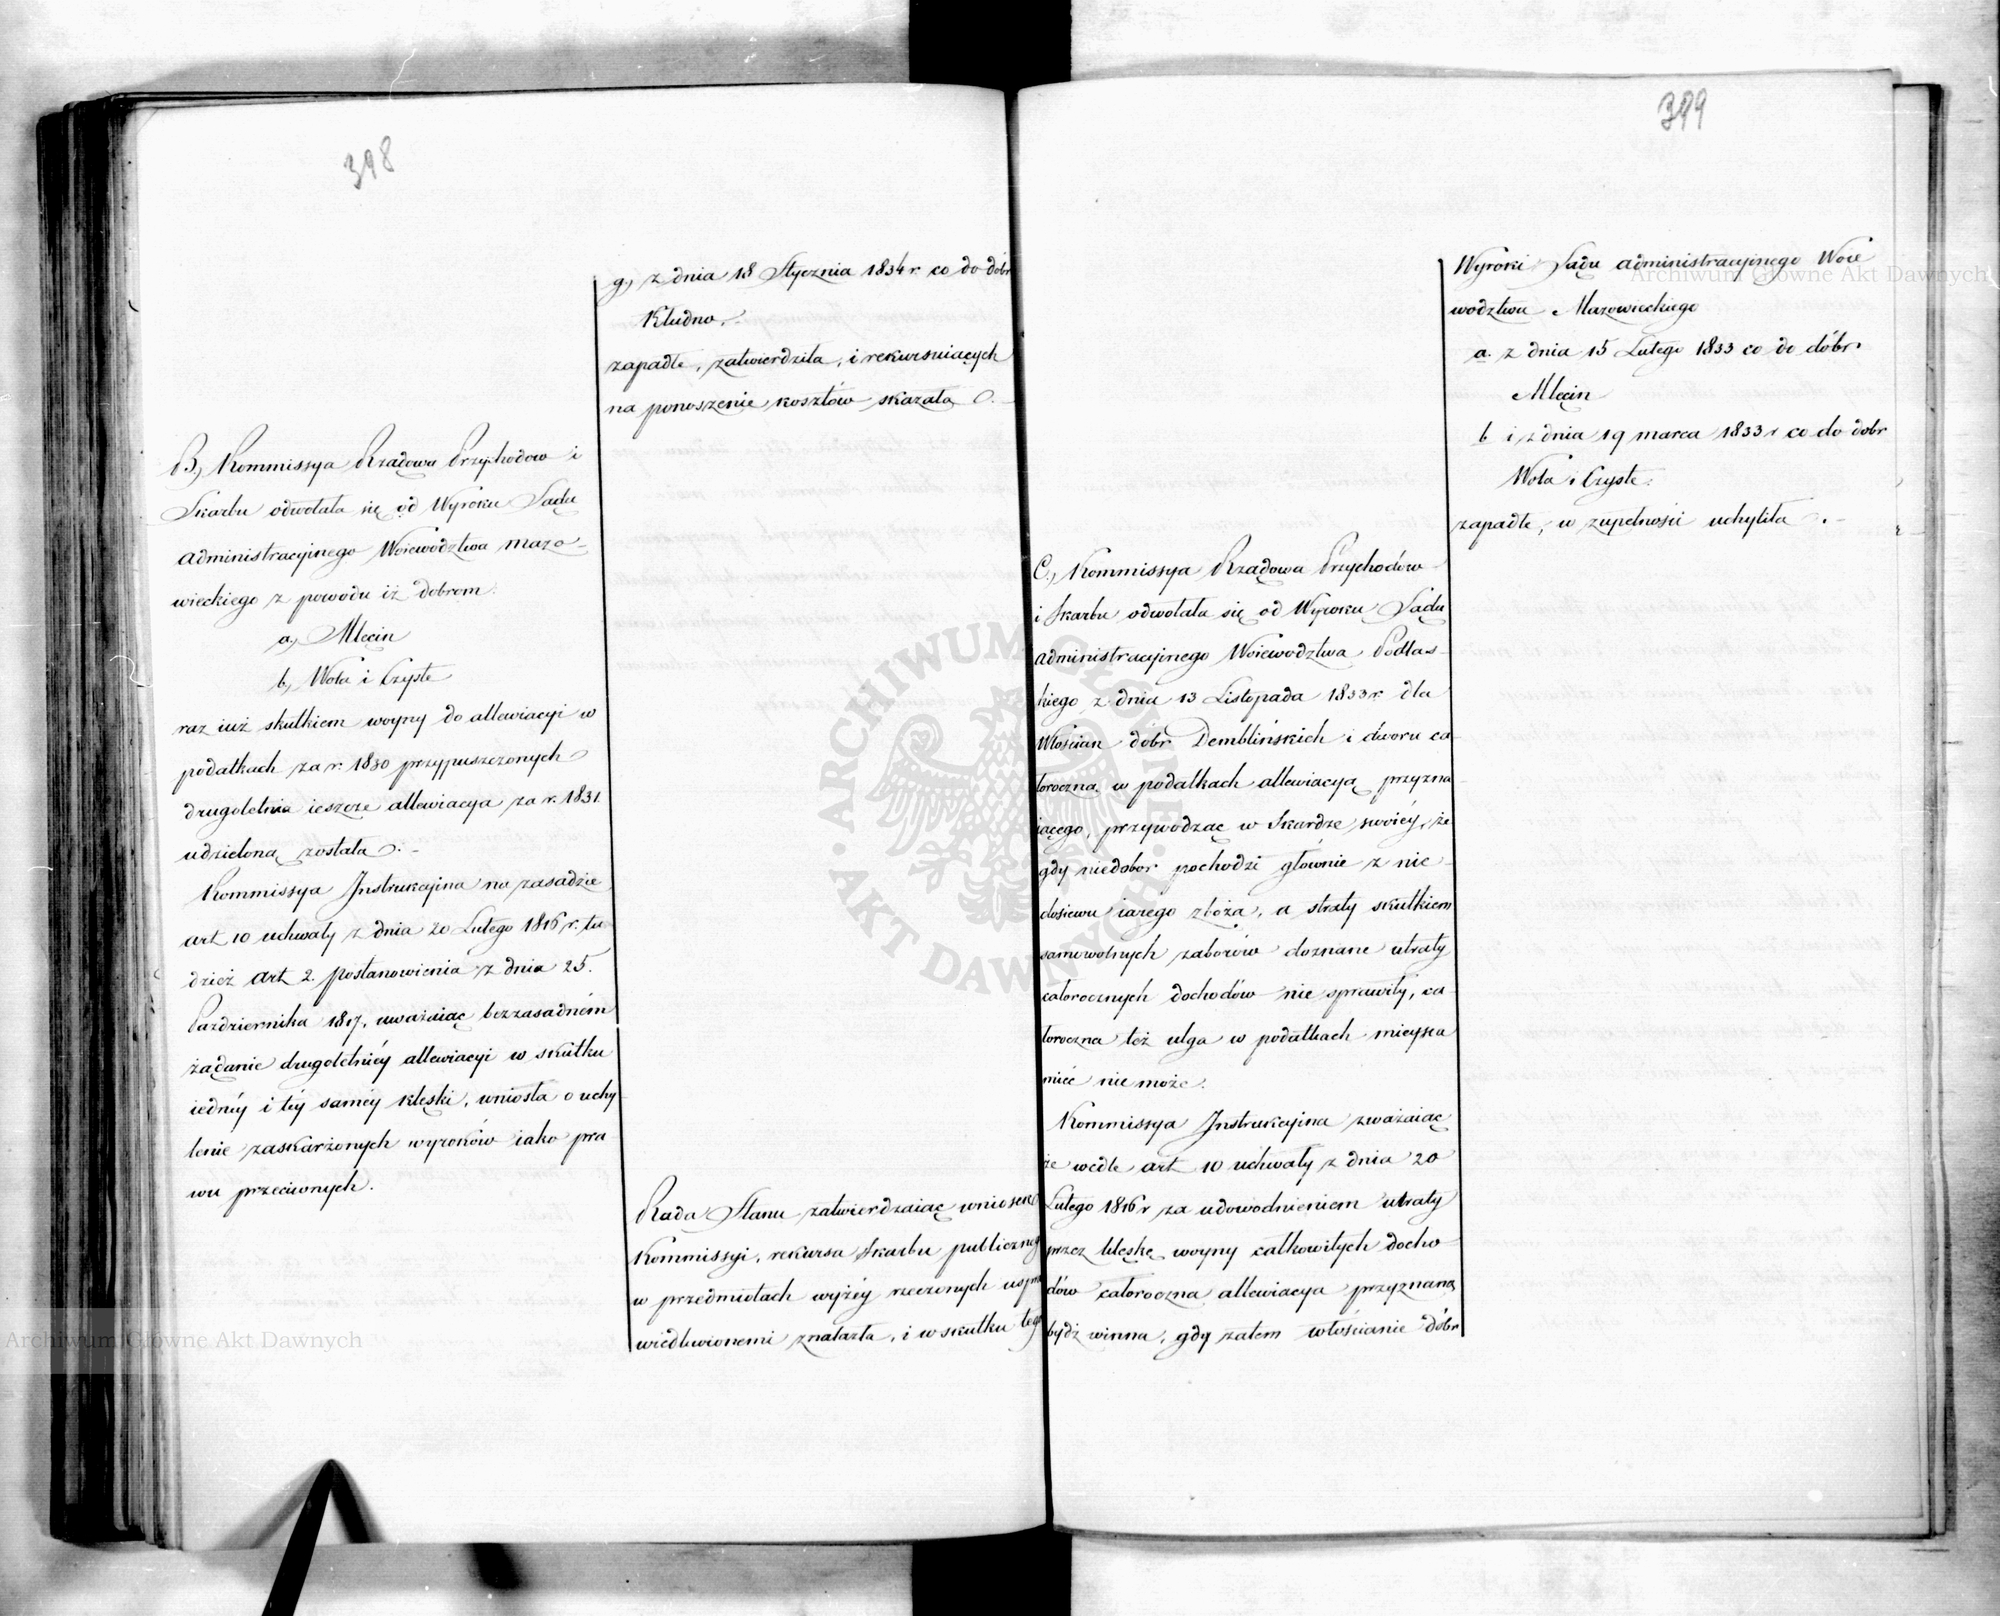 398
B.) Kommissya Rządowa Przychodow i
Skarbu odwołała się od Wyroku Sądu
administracyjnego Woiewodztwa mazo-
wieckiego z powodu iż dobrom
a.) Mlęcin
b.) Wola i Czyste
raz iuż skutkiem woyny do allewiacyi w
podatkach za r. 1830 przypuszczonych
drugoletnia ieszcze allewiacya za r. 1831.
udzieloną została. -
Kommissya Instrukcyina na zasadzie
art 10 uchwały z dnia 20 Lutego 1816 r. tu-
dzież art 2. postanowienia z dnia 25.
Października 1817, uważaiąc bezzasadném
żądanie drugoletniéy allewiacyi w skutku
iednéy i téy saméy klęski, wniosła o uchy-
lenie zaskarżonych wyroków iako pra
wu przeciwnych.
g.) z dnia 18 Stycznia 1834 r. co do dóbr
Kludno.
zapadłe, zatwierdziła, i rekursuiących
na ponoszenie kosztów skazała.
Rada Stanu zatwierdzaiąc wniosek
Kommissyi, rekursa Skarbu publiczneg
w przedmiotach wyżéy rzeczonych uspra
wiedliwionemi znalazła, i w skutku tego
399
C.) Kommissya Rządowa Przychodów
i Skarbu odwołała się od Wyroku Sądu
administracyjnego Woiewodztwa Podlas-
kiego z dnia 13 Listopada 1833 r. dla
Włościan dóbr Demblińskich i dworu ca-
łoroczną w podatkach allewiacyą przyzna
iącego, przywodząc w Skardze swoiéy, że
gdy niedobor pochodzi głównie z nie-
dosiewu iarego zboża, a straty skutkiem
samowolnych zaborów doznane utraty
całorocznych dochodów nie sprawiły, ca-
łoroczna też ulga w podatkach mieysca
mieć nie może.
Kommissya Instrukcyina zważaiąc
że wedle art 10 uchwały z dnia 20
Lutego 1816 r za udowodnieniem utraty
przez klęskę woyny całkowitych docho-
dów całoroczna allewiacya przyznaną
bydź winna, gdy zatem włościanie dóbr
Wyroki Sądu administracyjnego Woie
wodztwa Mazowieckiego
a. z dnia 15 Lutego 1833 co do dóbr
Mlęcin
b i z dnia 19 marca 1833 r co do dobr
Wola i Czyste.
zapadłe, w zupełności uchyliła. -
Archiwum Główne Akt Dawnych
Archiwum Główne Akt Dawnych
ARCHIWUM GŁÓWNE · AKT DAWNYCH ·